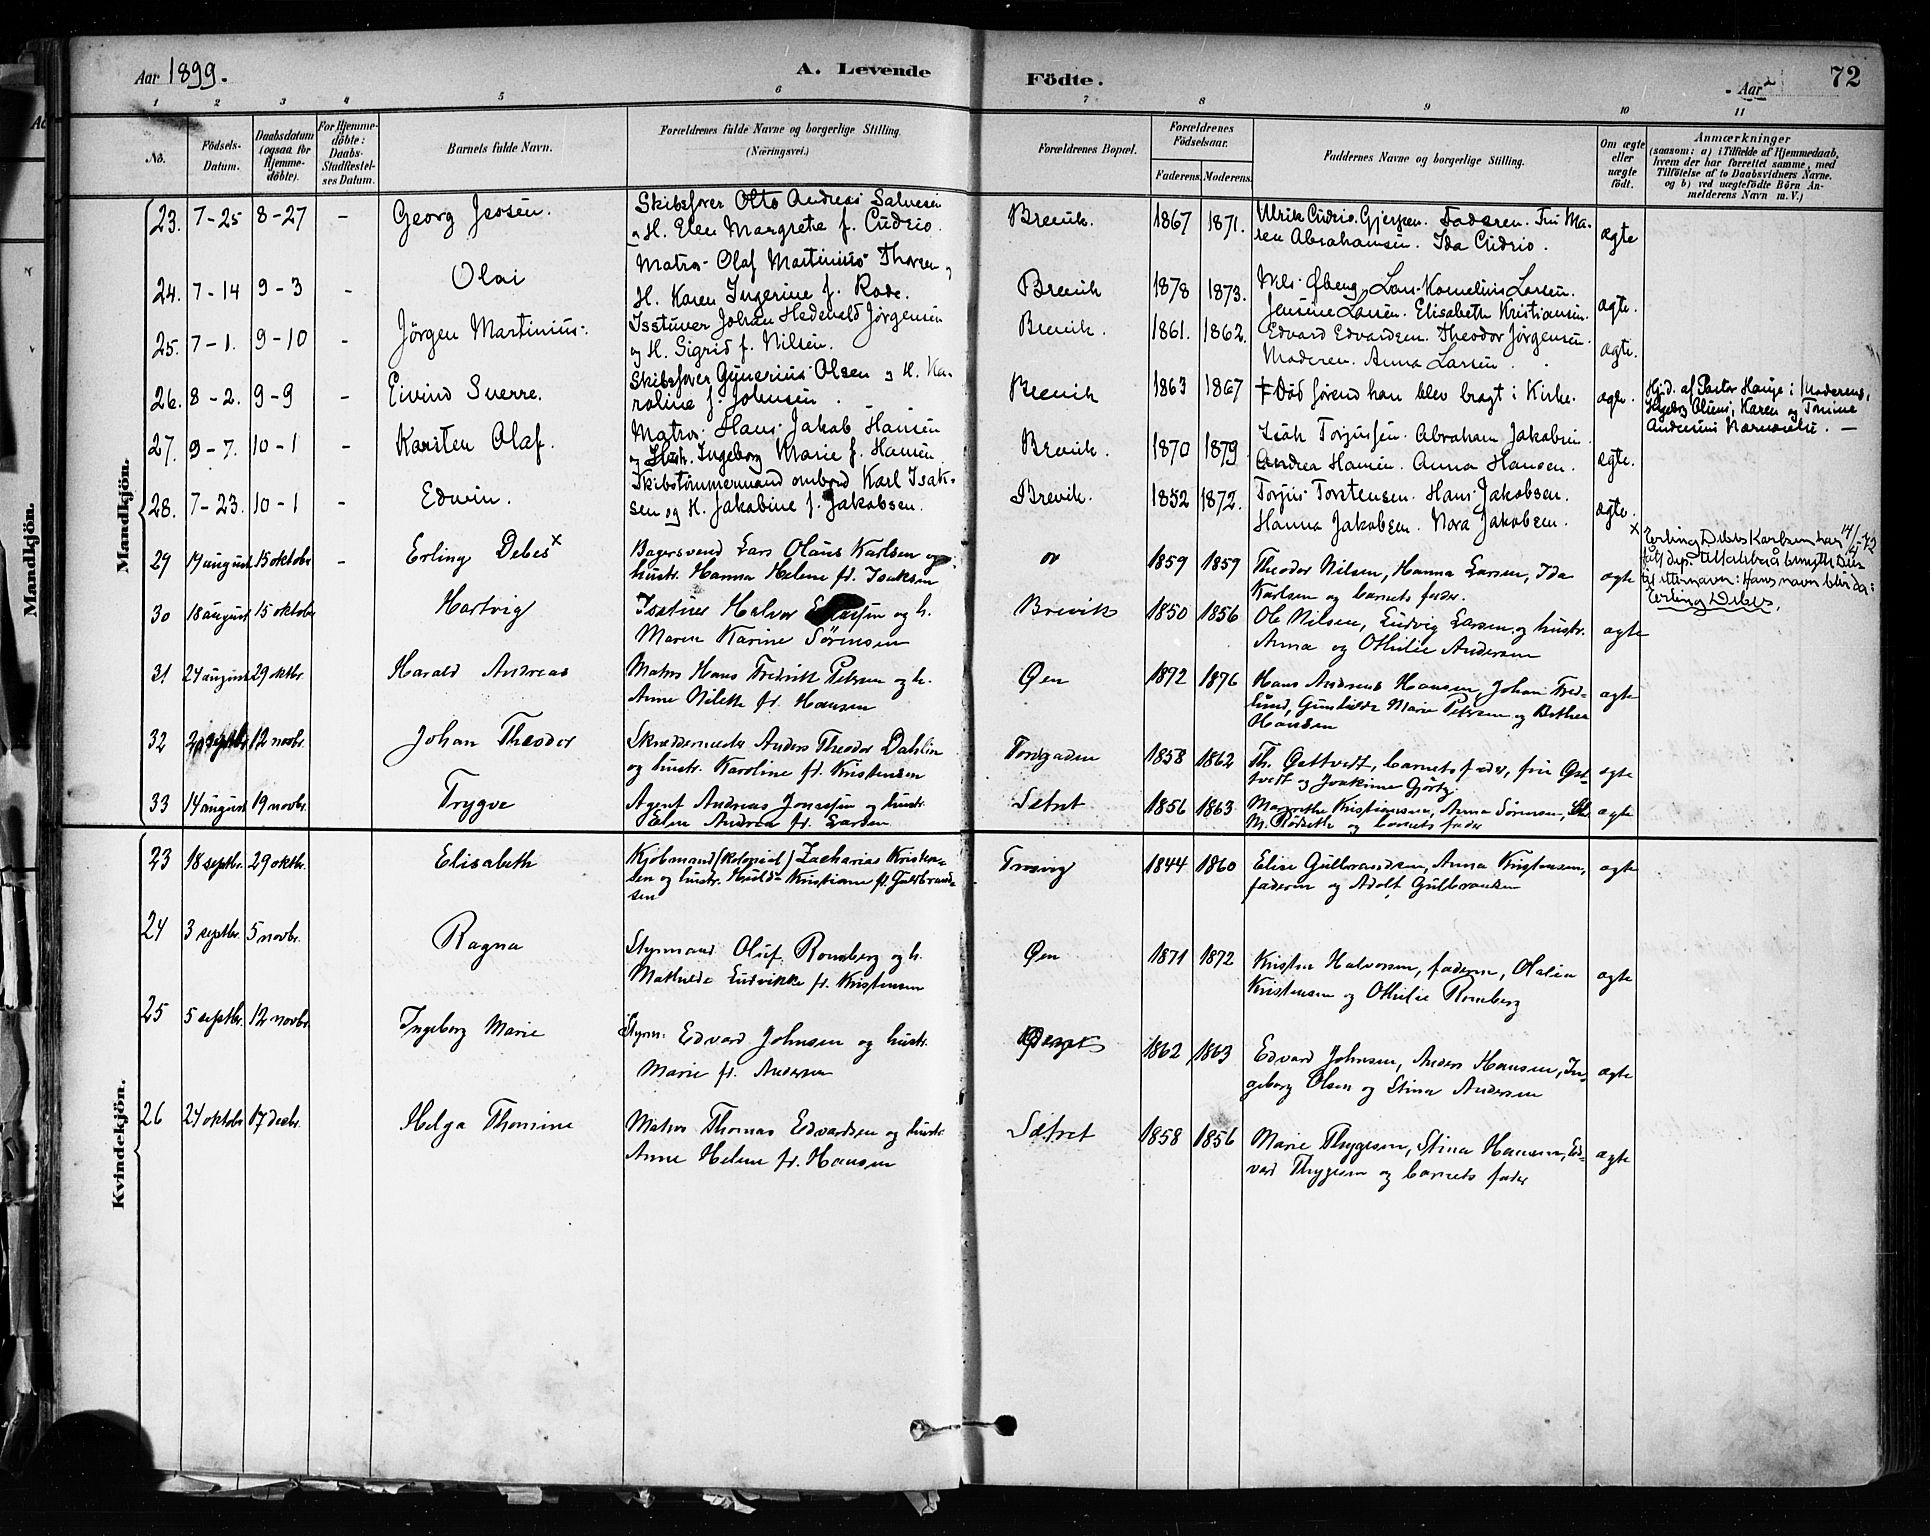 Aar 1899.
A. Levende
Födte.
Aar
72
1 2 3 4 5 6 7 8 9 10 11
No.
Födsels-Datum.
Daabsdatum (ogsaa for Hjemme-döbte).
For Hjemme-döbte: Daabs-Stadfæstel-ses Datum.
Barnets fulde Navn.
Forældrenes fulde Navne og borgerlige Stilling.
(Næringsvei.)
Forældrenes Bopæl.
Forældrenes Födselsaar.
Faderens. Moderens.
Faddernes Navne og borgerlige Stilling.
Om ægte eller uægte födt.
Anmærkninger
(saasom: a) i Tilfælde af Hjemmedaab,
hvem der har forrettet samme, med
Tilföielse af to Daabsvidners Navne.
og b) ved uægtefödte Börn An-
melderens Navn m. V.)
Mandkjön.
Mandkjön.
23. 7-25 8-27 - Georg Jessen. Skibsfører Otto Andreas Salvesen Brevik. 1867 1871. Ulrik Cudrio. Gjerpen. Faderen. Fru Ma- ægte
H. Elen Margrete f. Cudrio. ren Abrahamsen. Ida Cudrio.
24. 7-14 9-3 - Olai Matros Olaf Martinius Thorsen Brevik 1878 1873. Nils Øberg. Lars Kornelius Larsen. ægte.
H. Karen Ingerine f. Rode. Jensine Larsen. Elisabeth Kristiansen.
25. 7-1. 9-10 - Jörgen Martinius. Isstuver Johan Hedevald Jørgensen Brevik. 1861. 1862. Edvard Edvardsen. Theodor Jørgensen. ægte.
og H. Sigrid f. Nilsen. Moderen. Anna Larsen.
26. 8-2. 9-9 - Eivind Sverre. Skibsfører Gunerius Olsen og H. Ka- Brevik 1863 1867 Død førend han blev bragt i Kirke. ægte. Hjd. af Pastor Hauge i Moderens,
roline f. Johnsen. Ingeborg Olsens, Karen og Tomine
Andersens Nærværelse.
27. 9-7. 10-1 - Karsten Olaf. Matros Hans Jakob Hansen Brevik. 1870 1879 Isak Torjusen. Abraham Jakobsen ægte.
og Hustr. Ingeborg Marie f. Hansen. Andrea Hansen. Anna Hansen.
28. 7-23. 10-1 - Edwin. Skibstømmermand ombord Karl Isak- Brevik. 1852 1872. Torjus Torstensen. Hans Jakobsen. ægte.
sen og H. Jakobine f. Jakobsen. Hanna Jakobsen. Nora Jakobsen.
29 19 august 15 oktobr - Erling Debes x Bagersvend Lars Olaus Karlsen og 1859 1859 Theodor Nilsen, Hanna Larsen, Ida ægte x Erling Debes Karlsen har 14/4-72
hustr. Hanna Helene f. Isaksen Karlsen og barnets fader. fått dep. tillatelse å benytte Debes
til etternavn: Hans navn blir da:
Erling Debes.
30 18 august 15 oktobr Hartvig Isstuer Halvor Larsen og h. Brevik 1850 1856 Ole Nilsen, Ludvig Larsen og hustr. ægte
Maren Karine Sørensen Anna og Othilie Andersen
31 24 august 29 oktbr. Harald Andreas Matros Hans Fredrik Petersen og h. Øen 1892 1876 Hans Andreas Hansen, Johan Fred- ægte
Anne Nilette f. Hansen lund, Gunhilde Marie Petersen og Berthea
Hansen
32 septbr. 12 novbr. Johan Theodor Skræddermester Anders Theodor Dahlin Torvgaden 1858 1862 Th. Østtvedt, barnets fader, fru Øst- ægte
og hustr. Karoline f. Kristensen tvedt og Joakime Gjørtz.
33 14 august 19 novbr. Trygve Agent Andreas Jonassen og hustr. Sætret 1856 1863 Margrethe Kristiansen, Anna Sörensen, ægte
Elen Andrea f. Larsen M. Rødseth og barnets fader
Kvindekjön.
23 18 septbr. 29 oktbr. Elisabeth Kjöbmand (kolonial) Zacharias Kristen- Trosvig 1844 1860 Elise Gulbrandsen, Anna Kristensen, ægte
sen og hustr. Hulda Kristiane f. Gulbrand- faderen og Adolf Gulbransen
sen
24 3 septbr. 5 novbr. Ragna Styrmand Oluf Romberg og h. Øen 1871 1872 Kristen Halvorsen, faderen, Olalia ægte
Mathilde Ludvikke f. Kristensen Kristensen og Othilie Romberg
25 5 septbr. 12 novbr. Ingeborg Marie Styrm. Edvard Johnsen og hustr. 1862 1863 Edvard Johnsen, Anders Hansen, In- ægte
Marie f. Andersen geborg Olsen og Stina Andersen
26 24 oktobr 17 decbr. Helga Thomine Matros Thomas Edvardsen og hustr. Sætret 1858 1856 Marie Thygesen, Stina Hansen, Ed- ægte
Anne Helene f. Hansen vard Thygesen og barnets fader